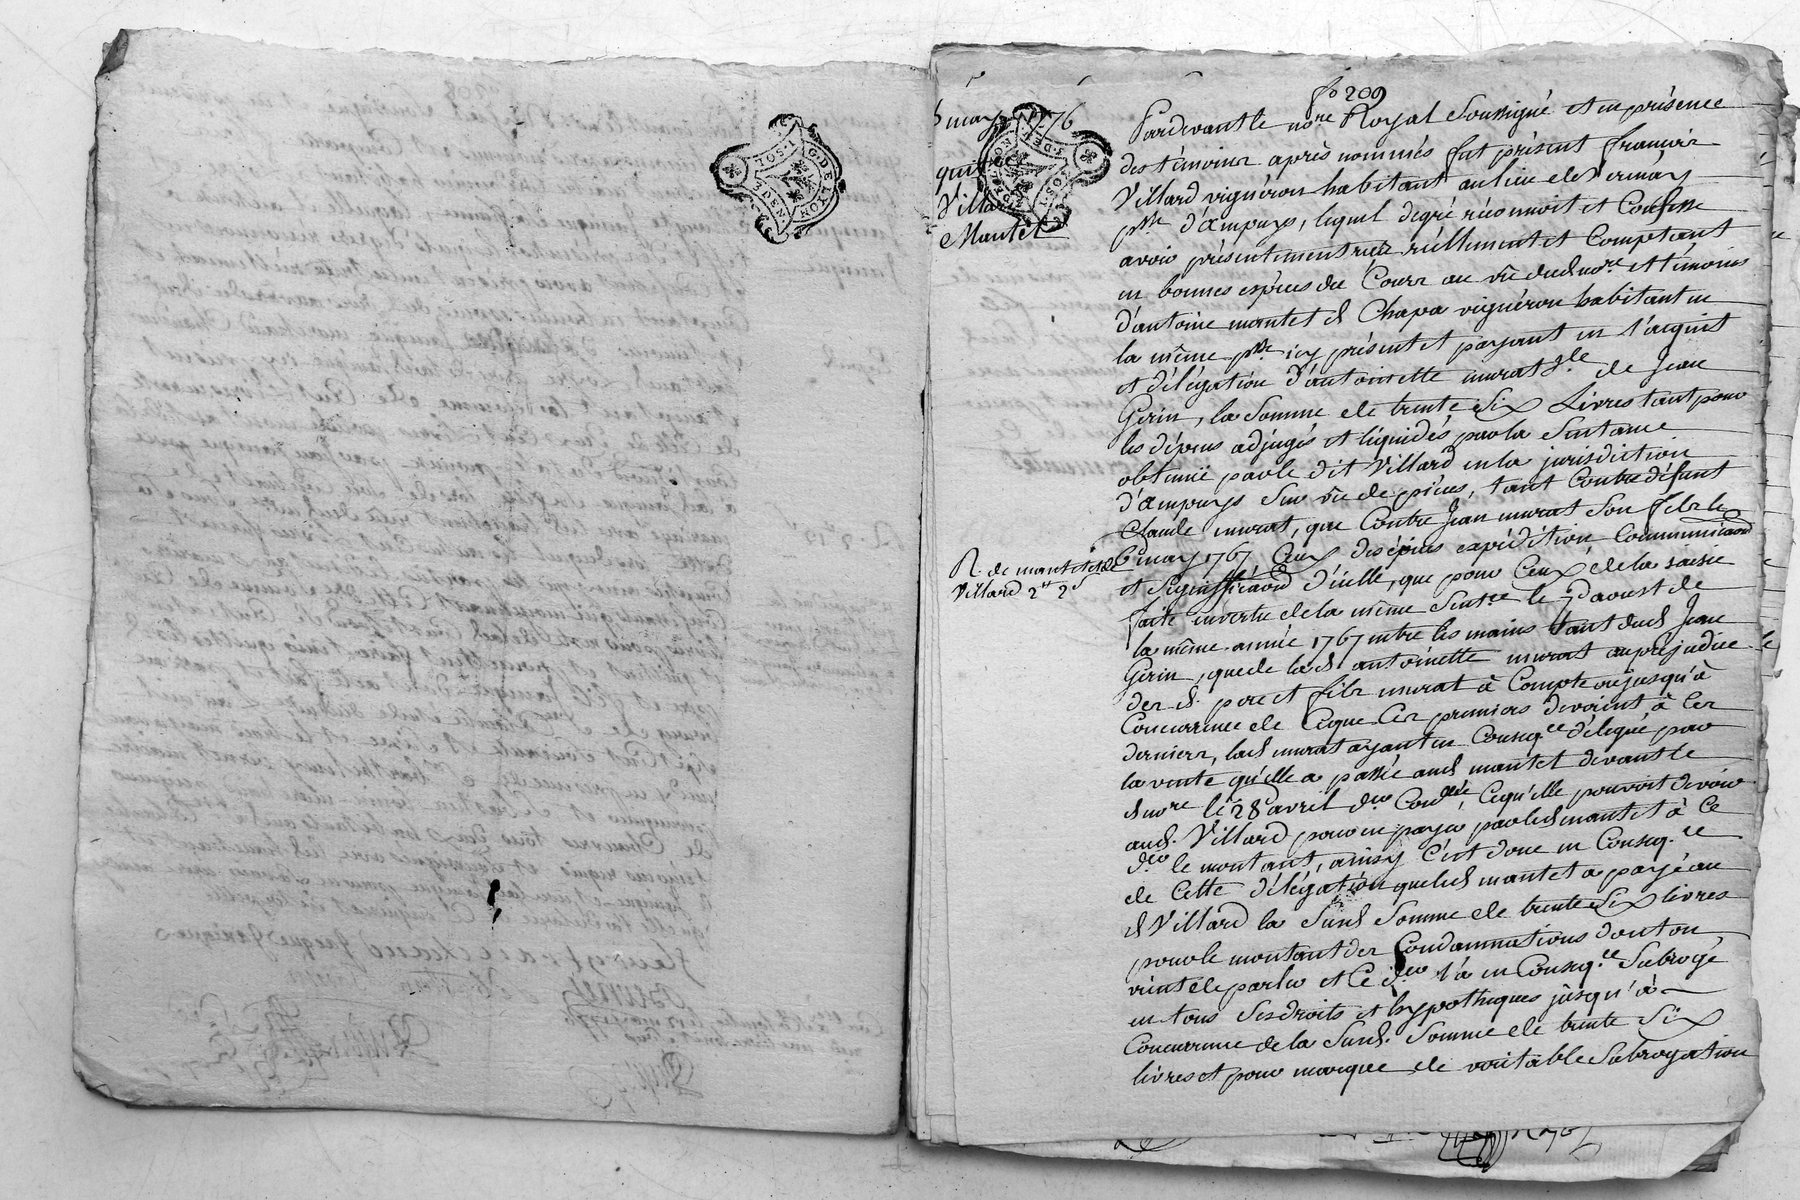 fo 209
5 may 1776
quit.ce
Villard
Mantet
Pardevant le no.re Royal Soussigné et en présence
des témoins après nommés fut présent françois
Villard vignéron habitant au lieu de Vérenay
p.sse d'ampuys, lequel de gré réconnoit et Confesse
avoir présentement reçu réellement et Comptant
en bonnes espèces du Cours au vû dud. no.re et témoins
d'antoine mantet d. Chapa vignéron habitant en
la même p.sse icy présent et payant en l'acquit
et délégation d'antoinette murat f.e de Jean
Gerin, la Somme de trente Six Livres tant pour
les dépens adjugés et liquidés par la Sentence
obtenuë par le dit Villard en la jurisdiction
d'ampuys Sur vû de pièces, tant Contre défunt
Claude murat, que Contre Jean murat Son fils le
6 may 1767 Ceux des épices expédition Communicaon
et Signifficaon d'icelle, que pour Ceux de la saisie
faite en vertu de la même Sent.ce le 7 d'aoust de
la même année 1767 entre les mains tant dud. Jean
Gerin, que de lad. antoinette murat au préjudice
des d. pere et fils murat à Compte ou jusqu'à
Concurrence de Ceque Ces premiers devoient à Ces
derniers, lad. murat ayant en Conseq.ce délégué par
la vente qu'elle a passée aud. mantet devant le
d. no.re le 28 avril d.er Con.lée, Cequ'elle pouvoit devoir
aud. Villard pour en payer par led. mantet à Ce
d.er le montant, ainsy C'est donc en Conseq.ce
de Cette délégation que led. mantet a payé au
d. Villard la Sus d. Somme de trente Six livres
pour le montant des Condamnations dont on
vient de parler et Ce d.er l'a en Conseq.ce Subrogé
en tous Ses droits et hypotheques jusqu'à
Concurrence de la Sus d. Somme de trente Six
livres et pour marque de véritable Subrogation
R. de mantet et de
Villard 2tt 2s